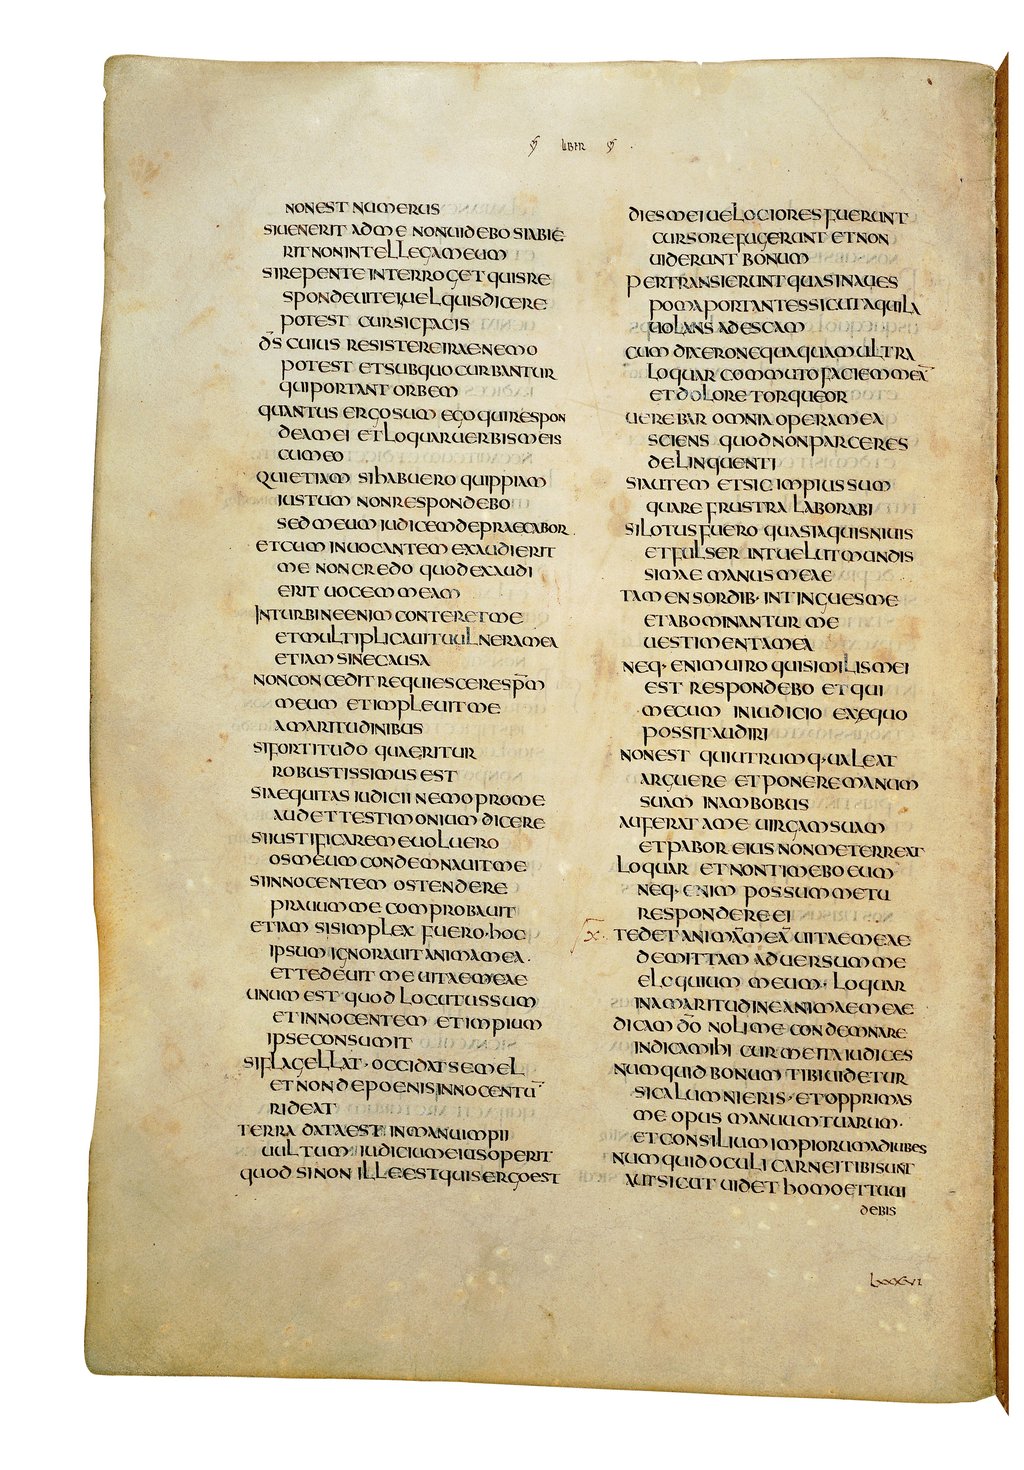 LIBER
NON EST NUMERUS
SI UENERIT AD ME NON UIDEBO SI ABIE
RIT NON INTELLEGAM EUM
SI REPENTE INTERROGET QUIS RE
SPONDEUIT EI UEL QUIS DICERE
POTEST CUR SIC FACIS
D̅S̅ CUIUS RESISTERE IRAE NEMO
POTEST ET SUB QUO CURBANTUR
QUI PORTANT ORBEM
QUANTUS ERGO SUM EGO QUI RESPON
DEAM EI ET LOQUAR UERBIS MEIS
CUM EO
QUI ETIAM SI HABUERO QUIPPIAM
IUSTUM NON RESPONDEBO
SED MEUM IUDICEM DEPRAECABOR
ET CUM INUOCANTEM EXAUDIERIT
ME NON CREDO QUOD EXAUDI
ERIT UOCEM MEAM
IN TURBINE ENIM CONTERET ME
ET MULTIPLICAUIT UULNERA MEA
ETIAM SINE CAUSA
NON CONCEDIT REQUIESCERE SP̅M
MEUM ET IMPLEUIT ME
AMARITUDINIBUS
SI FORTITUDO QUAERITUR
ROBUSTISSIMUS EST
SI AEQUITAS IUDICII NEMO PRO ME
AUDET TESTIMONIUM DICERE
SI IUSTIFICARE ME UOLUERO
OS MEUM CONDEMNAUIT ME
SI INNOCENTEM OSTENDERE
PRAUUM ME COMPROBAUIT
ETIAM SI SIMPLEX FUERO · HOC
IPSUM IGNORAUIT ANIMA MEA ·
ET TEDEUIT ME UITAE MEAE
UNUM EST QUOD LOCUTUS SUM
ET INNOCENTEM ET IMPIUM
IPSE CONSUMIT
SI FLAGELLAT · OCCIDAT SEMEL
ET NON DE POENIS INNOCENTU̅
RIDEAT
TERRA DATA EST IN MANU IMPII
UULTUM IUDICIUM EIUS OPERIT
QUOD SI NON ILLE EST QUIS ERGO EST
DIES MEI UELOCIORES FUERUNT
CURSORE FUGERUNT ET NON
UIDERUNT BONUM
PERTRANSIERUNT QUASI NAUES
POMA PORTANTES SICUT AQUILA
UOLANS AD ESCAM
CUM DIXERO NEQUAQUAM ULTRA
LOQUAR COMMUTO FACIEM MEA̅
ET DOLORE TORQUEOR
UEREBAR OMNIA OPERA MEA
SCIENS QUOD NON PARCERES
DELINQUENTI
SI AUTEM ET SIC IMPIUS SUM
QUARE FRUSTRA LABORABI
SI LOTUS FUERO QUASI AQUIS NIUIS
ET FULSERINT UELUT MUNDIS
SIMAE MANUS MEAE
TAMEN SORDIB· INTINGUES ME
ET ABOMINANTUR ME
UESTIMENTA MEA
NEQ· ENIM UIRO QUI SIMILIS MEI
EST RESPONDEBO ET QUI
MECUM IN IUDICIO EX EQUO
POSSIT AUDIRI
NON EST QUI UTRUMQ· UALEAT
ARGUERE ET PONERE MANUM
SUAM IN AMBOBUS
AUFERAT A ME UIRGAM SUAM
ET PABOR EIUS NON ME TERREAT
LOQUAR ET NON TIMEBO EUM
NEQ· ENIM POSSUM METU
RESPONDERE EI
X· TEDET ANIMA̅M MEA̅ UITAE MEAE
DEMITTAM ADUERSUM ME
ELOQUIUM MEUM · LOQUAR
IN AMARITUDINE ANIMAE MEAE
DICAM D̅O̅ NOLI ME CONDEMNARE
INDICA MIHI CUR ME ITA IUDICES
NUMQUID BONUM TIBI UIDETUR
SI CALUMNIERIS · ET OPPRIMAS
ME OPUS MANUUM TUARUM ·
ET CONSILIUM IMPIORUM ADIUBES
NUMQUID OCULI CARNEI TIBI SUNT
AUT SICUT UIDET HOMO ET TU UI
DEBIS
LXXXVI